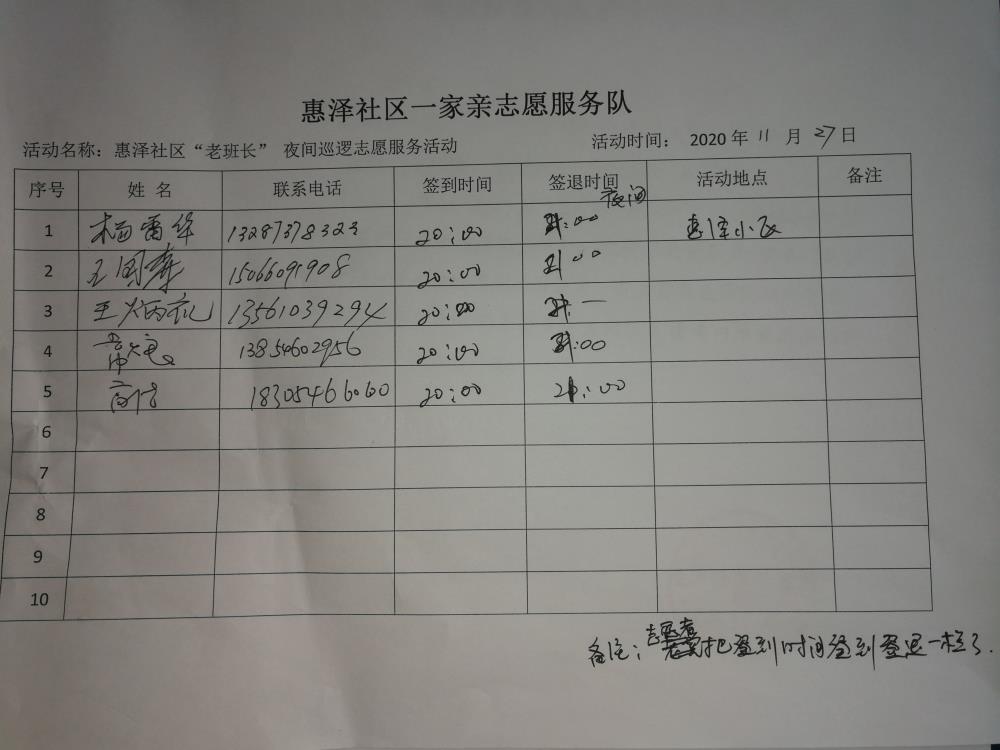 惠泽社区一家亲志愿服务队
活动名称：惠泽社区“老班长” 夜间巡逻志愿服务活动 活动时间： 2020 年 11 月 27 日
序号 姓 名 联系电话 签到时间 签退时间 活动地点 备注
夜间
1 杨雷华 13287378323 20:00 21:00 惠泽小区
2 王国 15066091908 20:00 21 00
3 王 13561039294 20:00 21:
4 13854602956 20:00 21:00
5 高 18305466060 20:00 21:00
6
7
8
9
10
备注：志愿者把签到时间签到签退一栏了.